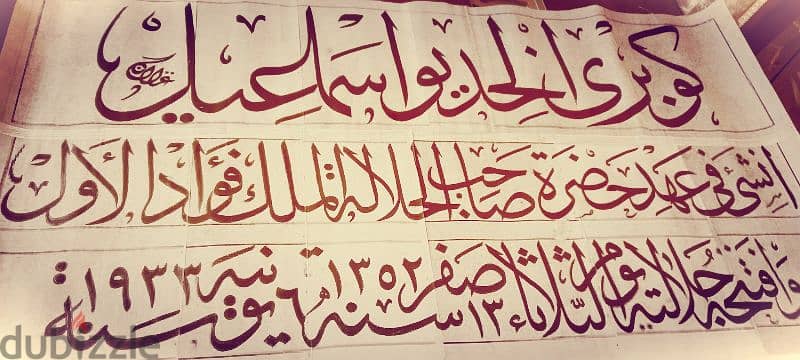 كوبرى الخديو اسماعيل
انشئ فى عهد حضرة صاحب الجلالة الملك فؤاد الأول
وافتتحه جلالته يوم الثلاثاء ١٣ صفر سنة ١٣٥٢ ٦ يونيه سنة ١٩٣٣
dubizzle